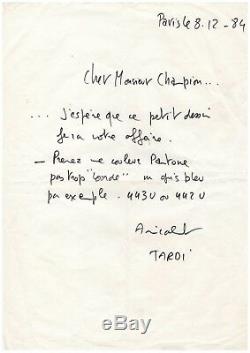 Paris le 8.12-84
Cher Monsieur Champion...
... J'espère que ce petit dessin
fera votre affaire.
- Prenez une couleur Pantone
pas trop "soude" un gris bleu
par exemple. 443U ou 442U
Amicalement
TARDI
ebay